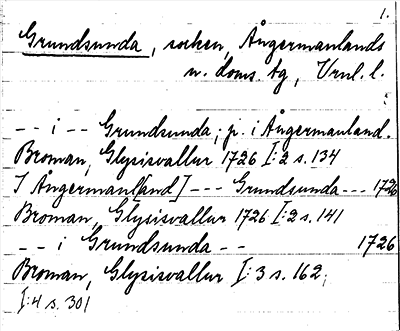 1.
Grundsunda, socken, Ångermanlands
n. doms. tg, Vrnl. l.
-- i -- Grundsunda, p. i Ångermanland.
Broman, Glysisvallur 1726 I:2 s. 134
I Ångermanl[and] --- Grundsunda --- 1726
Broman, Glysisvallur 1726 I:2 s. 141
-- i Grundsunda -- 1726
Broman, Glysisvallur I:3 s. 162,
I:4 s. 301